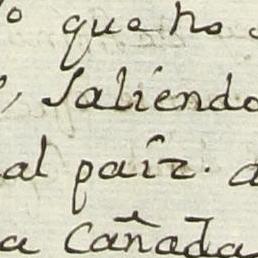 que no
Saliendo
al paiz. a
a Cañada